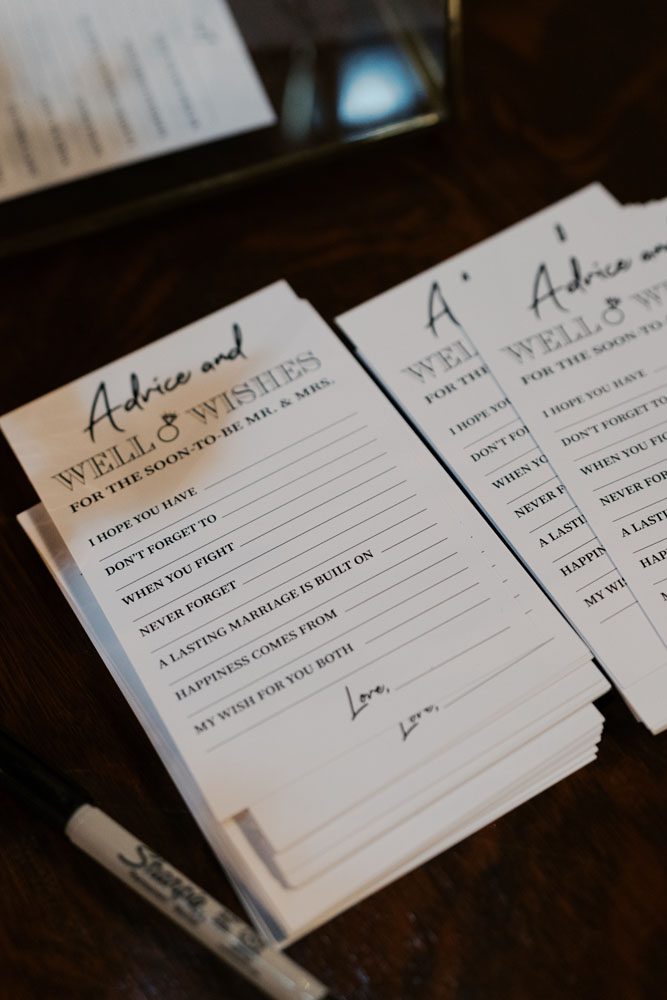 Advice and
WELL WISHES
FOR THE SOON-TO-BE MR. & MRS.
I HOPE YOU HAVE
DON'T FORGET TO
WHEN YOU FIGHT
NEVER FORGET
A LASTING MARRIAGE IS BUILT ON
HAPPINESS COMES FROM
MY WISH FOR YOU BOTH
Love,
Love,
A
WELL
FOR THE
I HOPE YOU
DON'T FOR
WHEN YO
NEVER F
A LASTI
HAPPIN
MY WI
Advice and
WELL WI
FOR THE SOON-TO
I HOPE YOU HAVE
DON'T FORGET TO
WHEN YOU FIGHT
NEVER FORGET
A LASTING
HAPPINESS
Sharpie